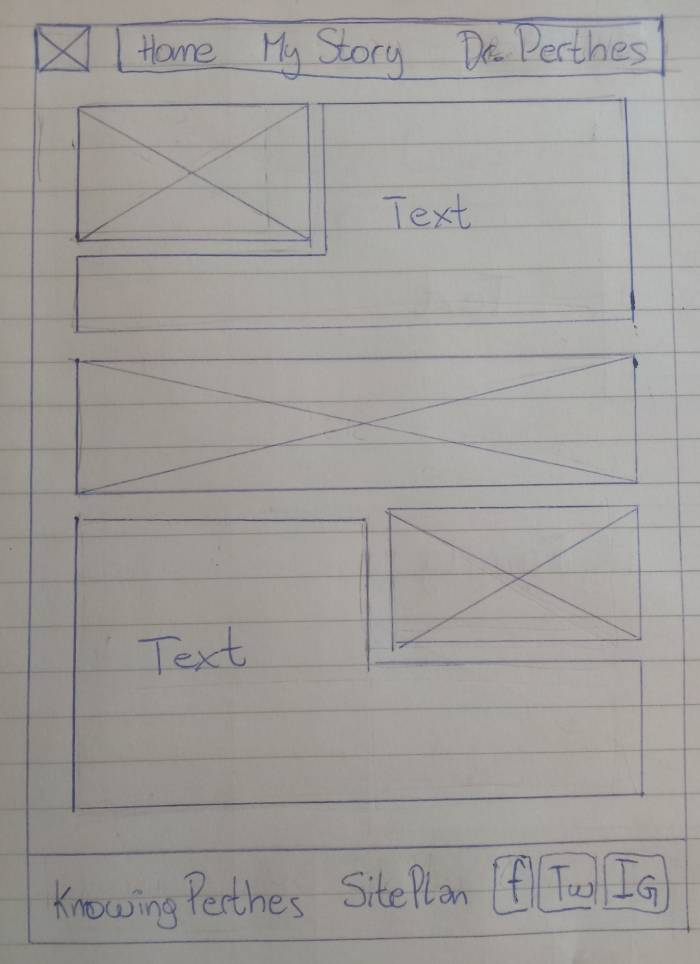 Home My Story Dr. Perthes
Text
Text
Knowing Perthes Site Plan f Tw IG